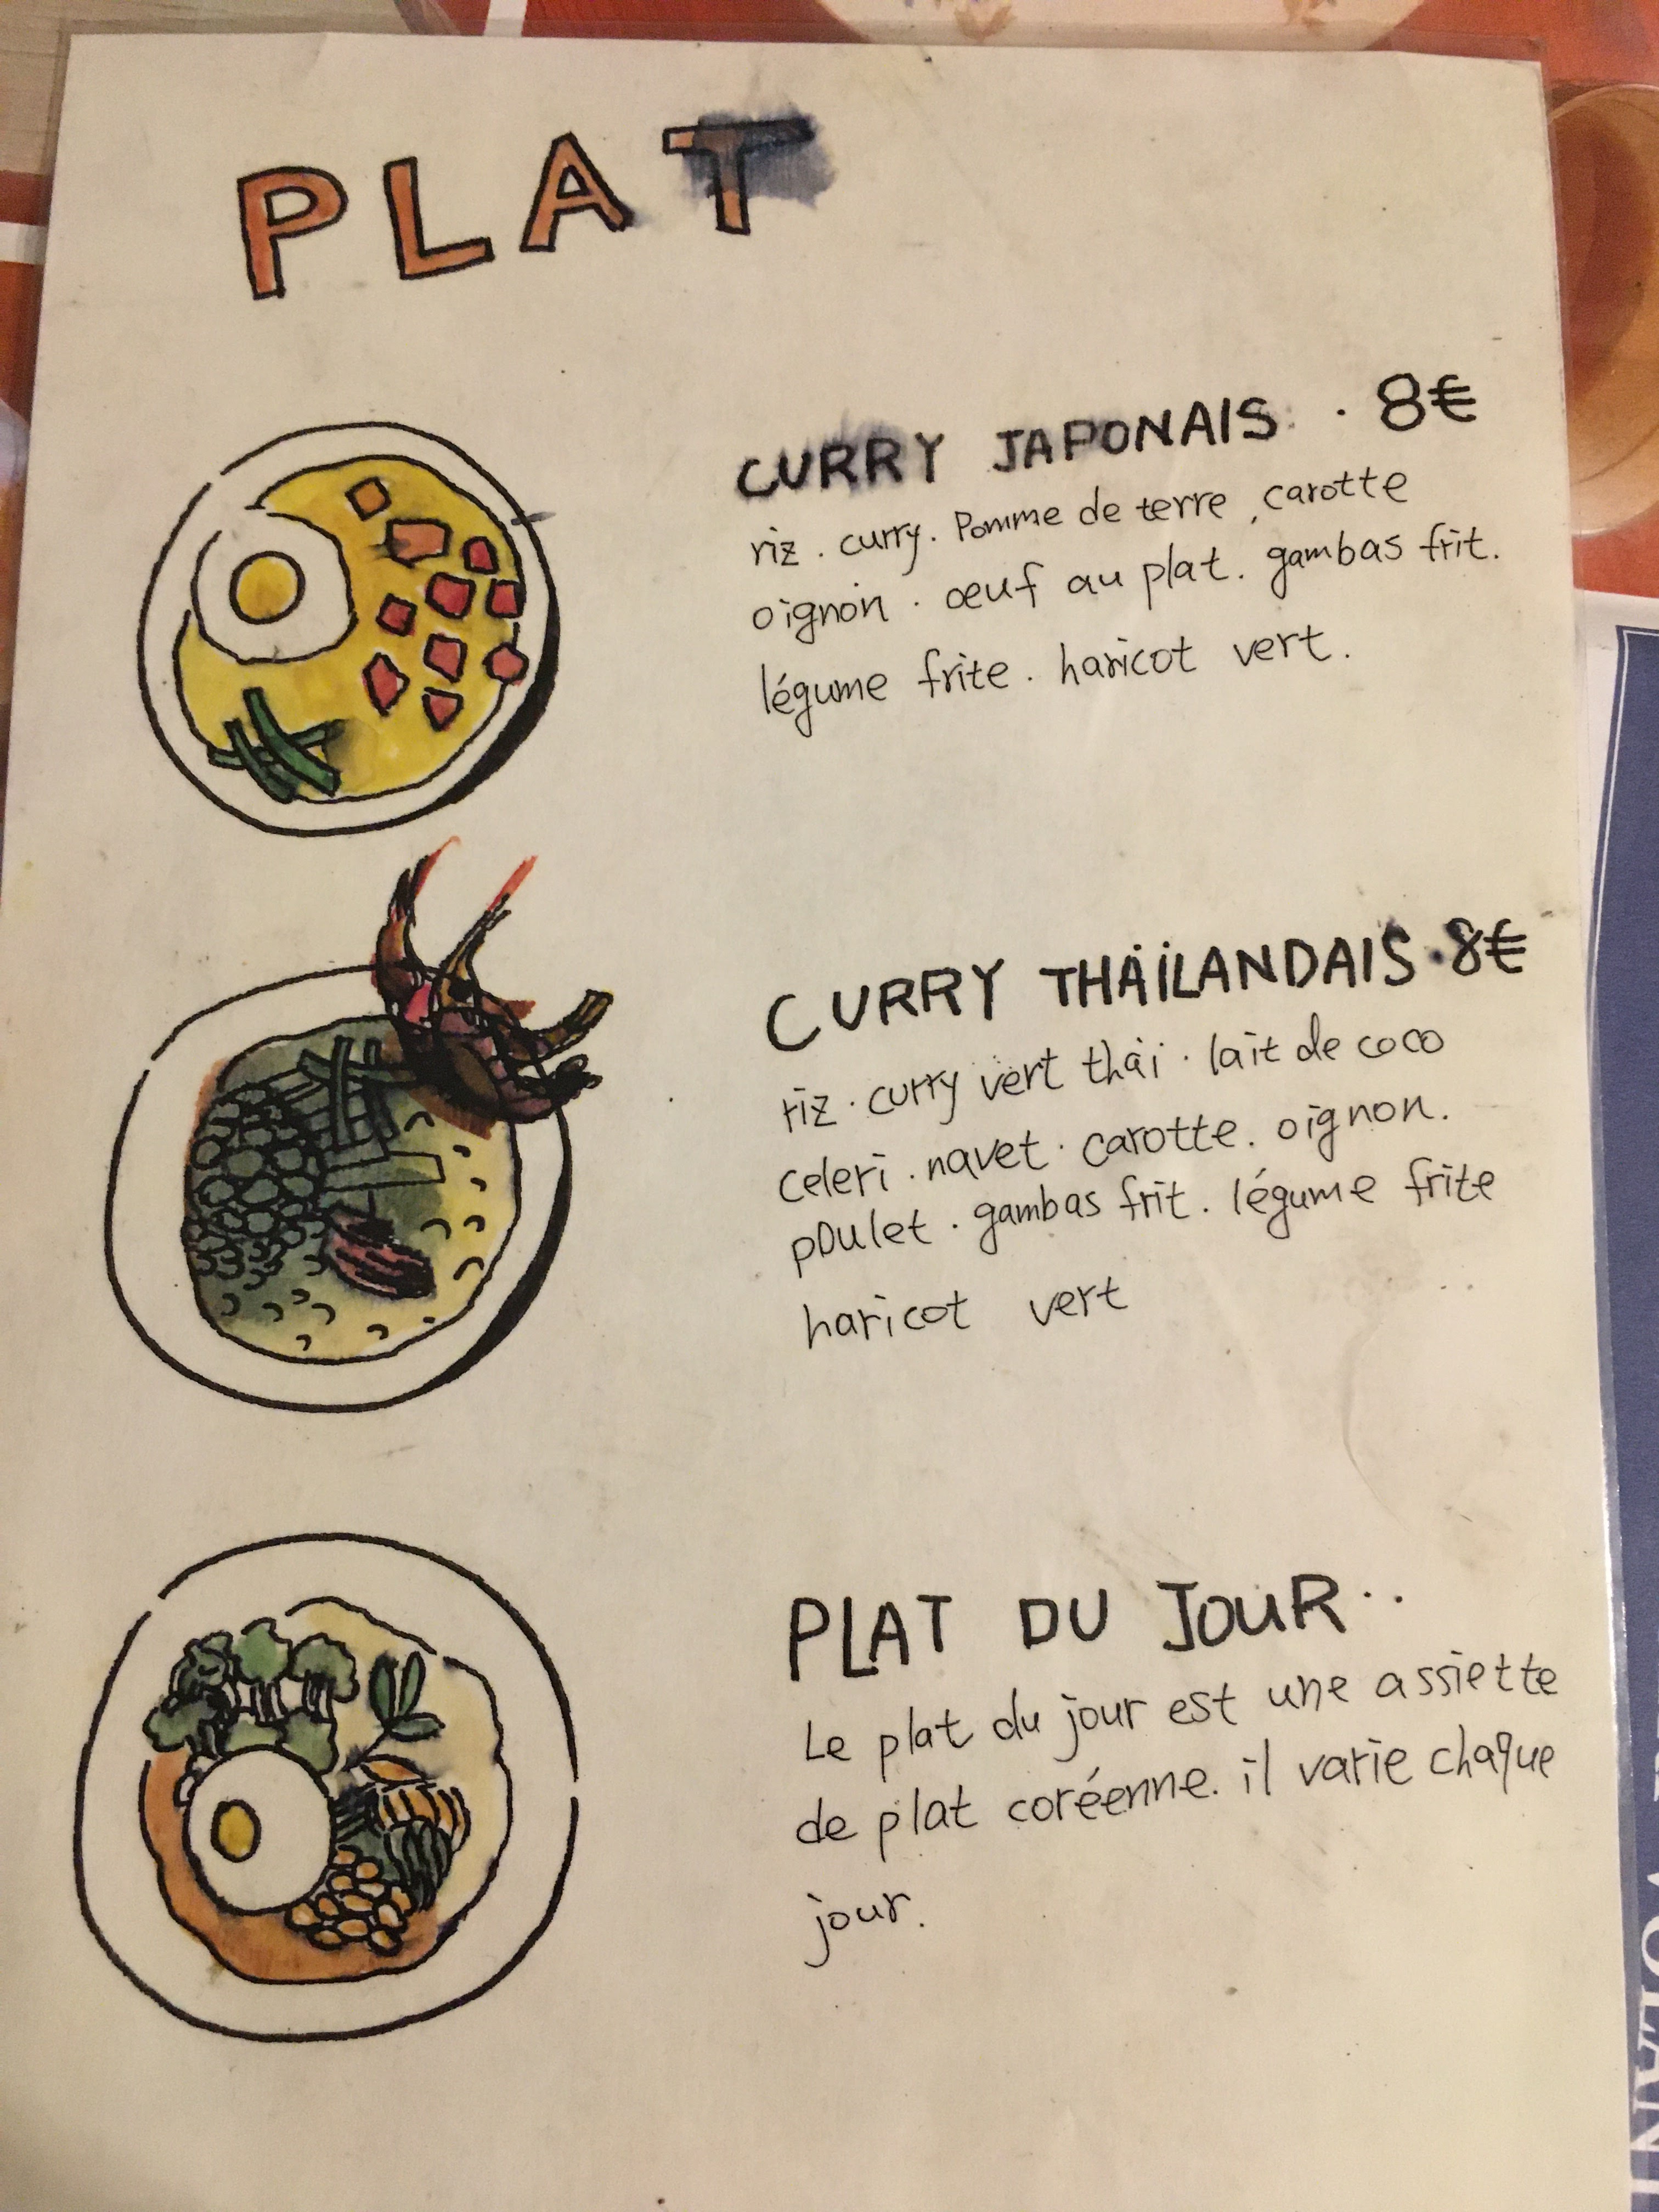 PLAT
CURRY JAPONAIS . 8€
riz . curry. Pomme de terre , carotte
oignon . œuf au plat. gambas frit.
légume frite . haricot vert.
CURRY THAÏLANDAIS . 8€
riz . curry vert thäi . lait de coco
celeri . navet . carotte. oignon.
poulet . gambas frit . légume frite
haricot vert
PLAT DU JOUR ..
Le plat du jour est une assiette
de plat coréenne. il varie chaque
jour.